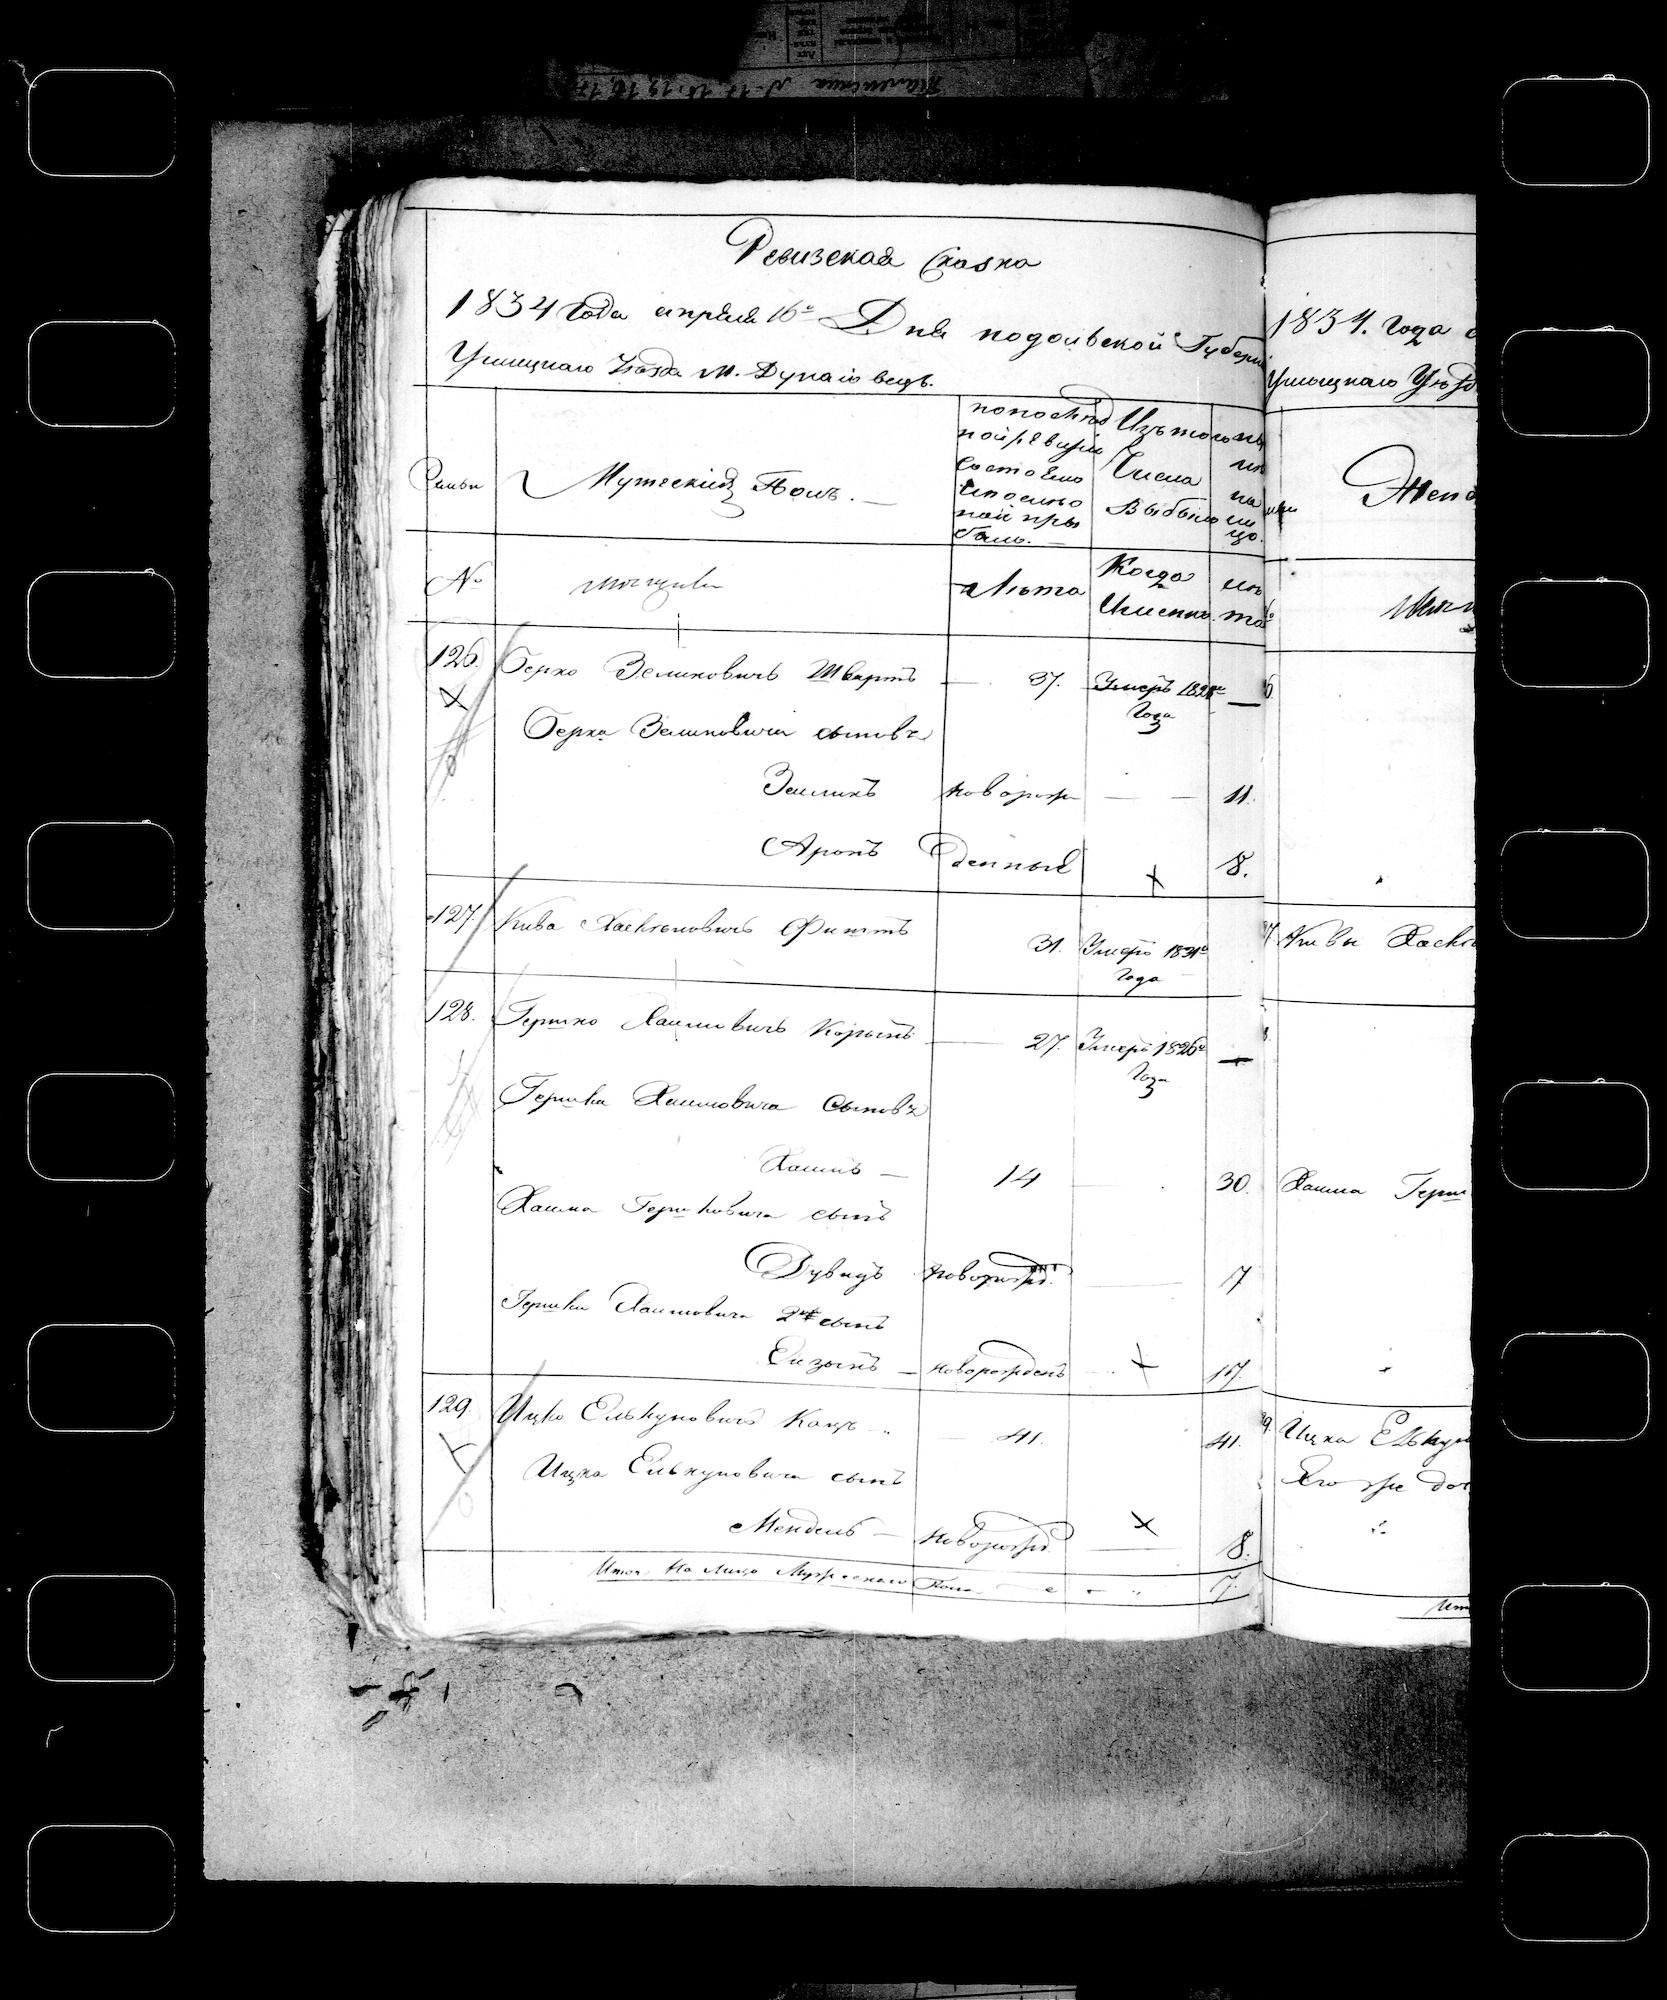 Ревизская Сказка
1834 Года апреля 16го Дня подольской Губерн
Ушицкаго Уезда М. Дунаевецъ.
Семьи
Мужескій Полъ.
по последней ревизіи состояло и после оной прибыло.
Изъ того Числа Выбыло
ны не на ли цо.
№
мещане
Лета
Когда Именно.
ле та
126. Берко Зеликовичъ Шварцъ 37. Умеръ 1828го Года —
Берка Зеликовича сыновя
Зеликъ новорож — — 11.
Аронъ денные 8.
127. Кива Хаскелевичъ 31. Умеръ 1831го Года
128. Гершко Хаимовичъ 27. Умеръ 1826го Года —
Гершка Хаимовича Сыновя
Хаимъ — 14 30.
Хаима Гершковича сынъ
Дувидъ новорожд. 7
Гершка Хаимовича 2й сынъ
новорожденъ 17.
129. Ицко Елькуновичъ Кацъ 41. 41.
Ицка Елькуновича сынъ
Мендель — новорожд. 8.
Итого На лицо Мужескаго Пола 7.
1834. Года
Ушицкаго Уезд
Женс
Кивы Хаске
Хаима Герш
Ицка Елькун
Его же доч
Ито